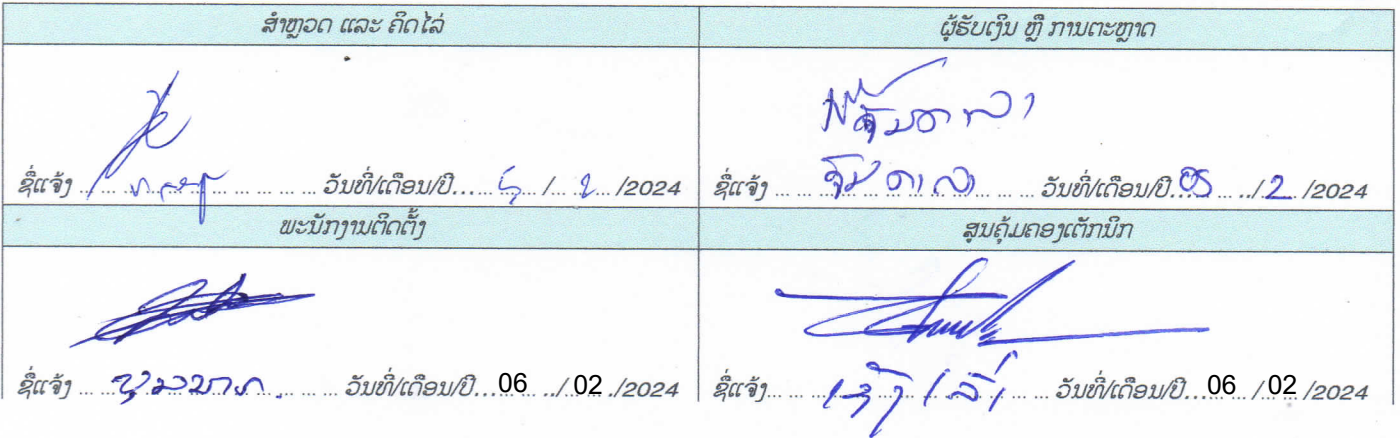 ສຳຫຼວດ ແລະ ຄິດໄລ່
ຜູ້ຮັບເງິນ ຫຼື ການຕະຫຼາດ
ຊື່ແຈ້ງ ... ວັນທີ່/ເດືອນ/ປີ..... 5 /... 2 ... /2024
ຊື່ແຈ້ງ ... ວັນທີ່/ເດືອນ/ປີ. 05 ... ../.2.. /2024
ພະນັກງານຕິດຕັ້ງ
ສູນຄຸ້ມຄອງເຕັກນິກ
ຊື່ແຈ້ງ ... ວັນທີ່/ເດືອນ/ປີ...06 .../.02 ./2024
ຊື່ແຈ້ງ ... ວັນທີ່/ເດືອນ/ປີ...06.. /..02 /2024